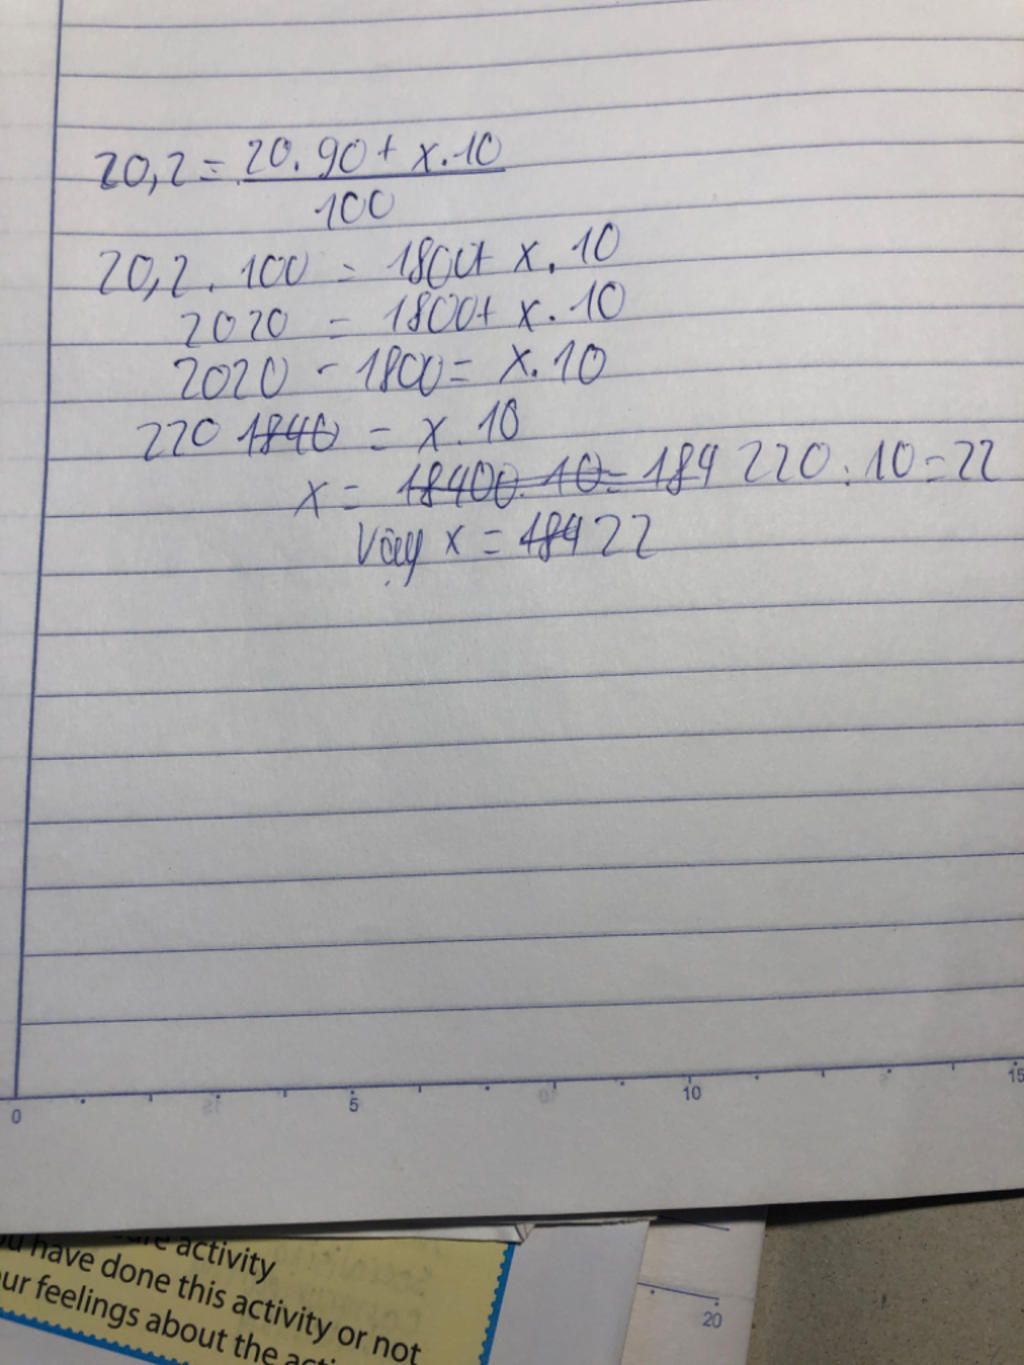 20,2 = 20.90 + x.10
100
20,2 . 100 = 1800 + x . 10
2020 = 1800 + x . 10
2020 - 1800 = x . 10
220 1840 = x . 10
x = 18400 . 10 = 184 220 : 10 = 22
Vậy x = 184 22
0 5 10 15
activity
have done this activity or not
ur feelings about the
20